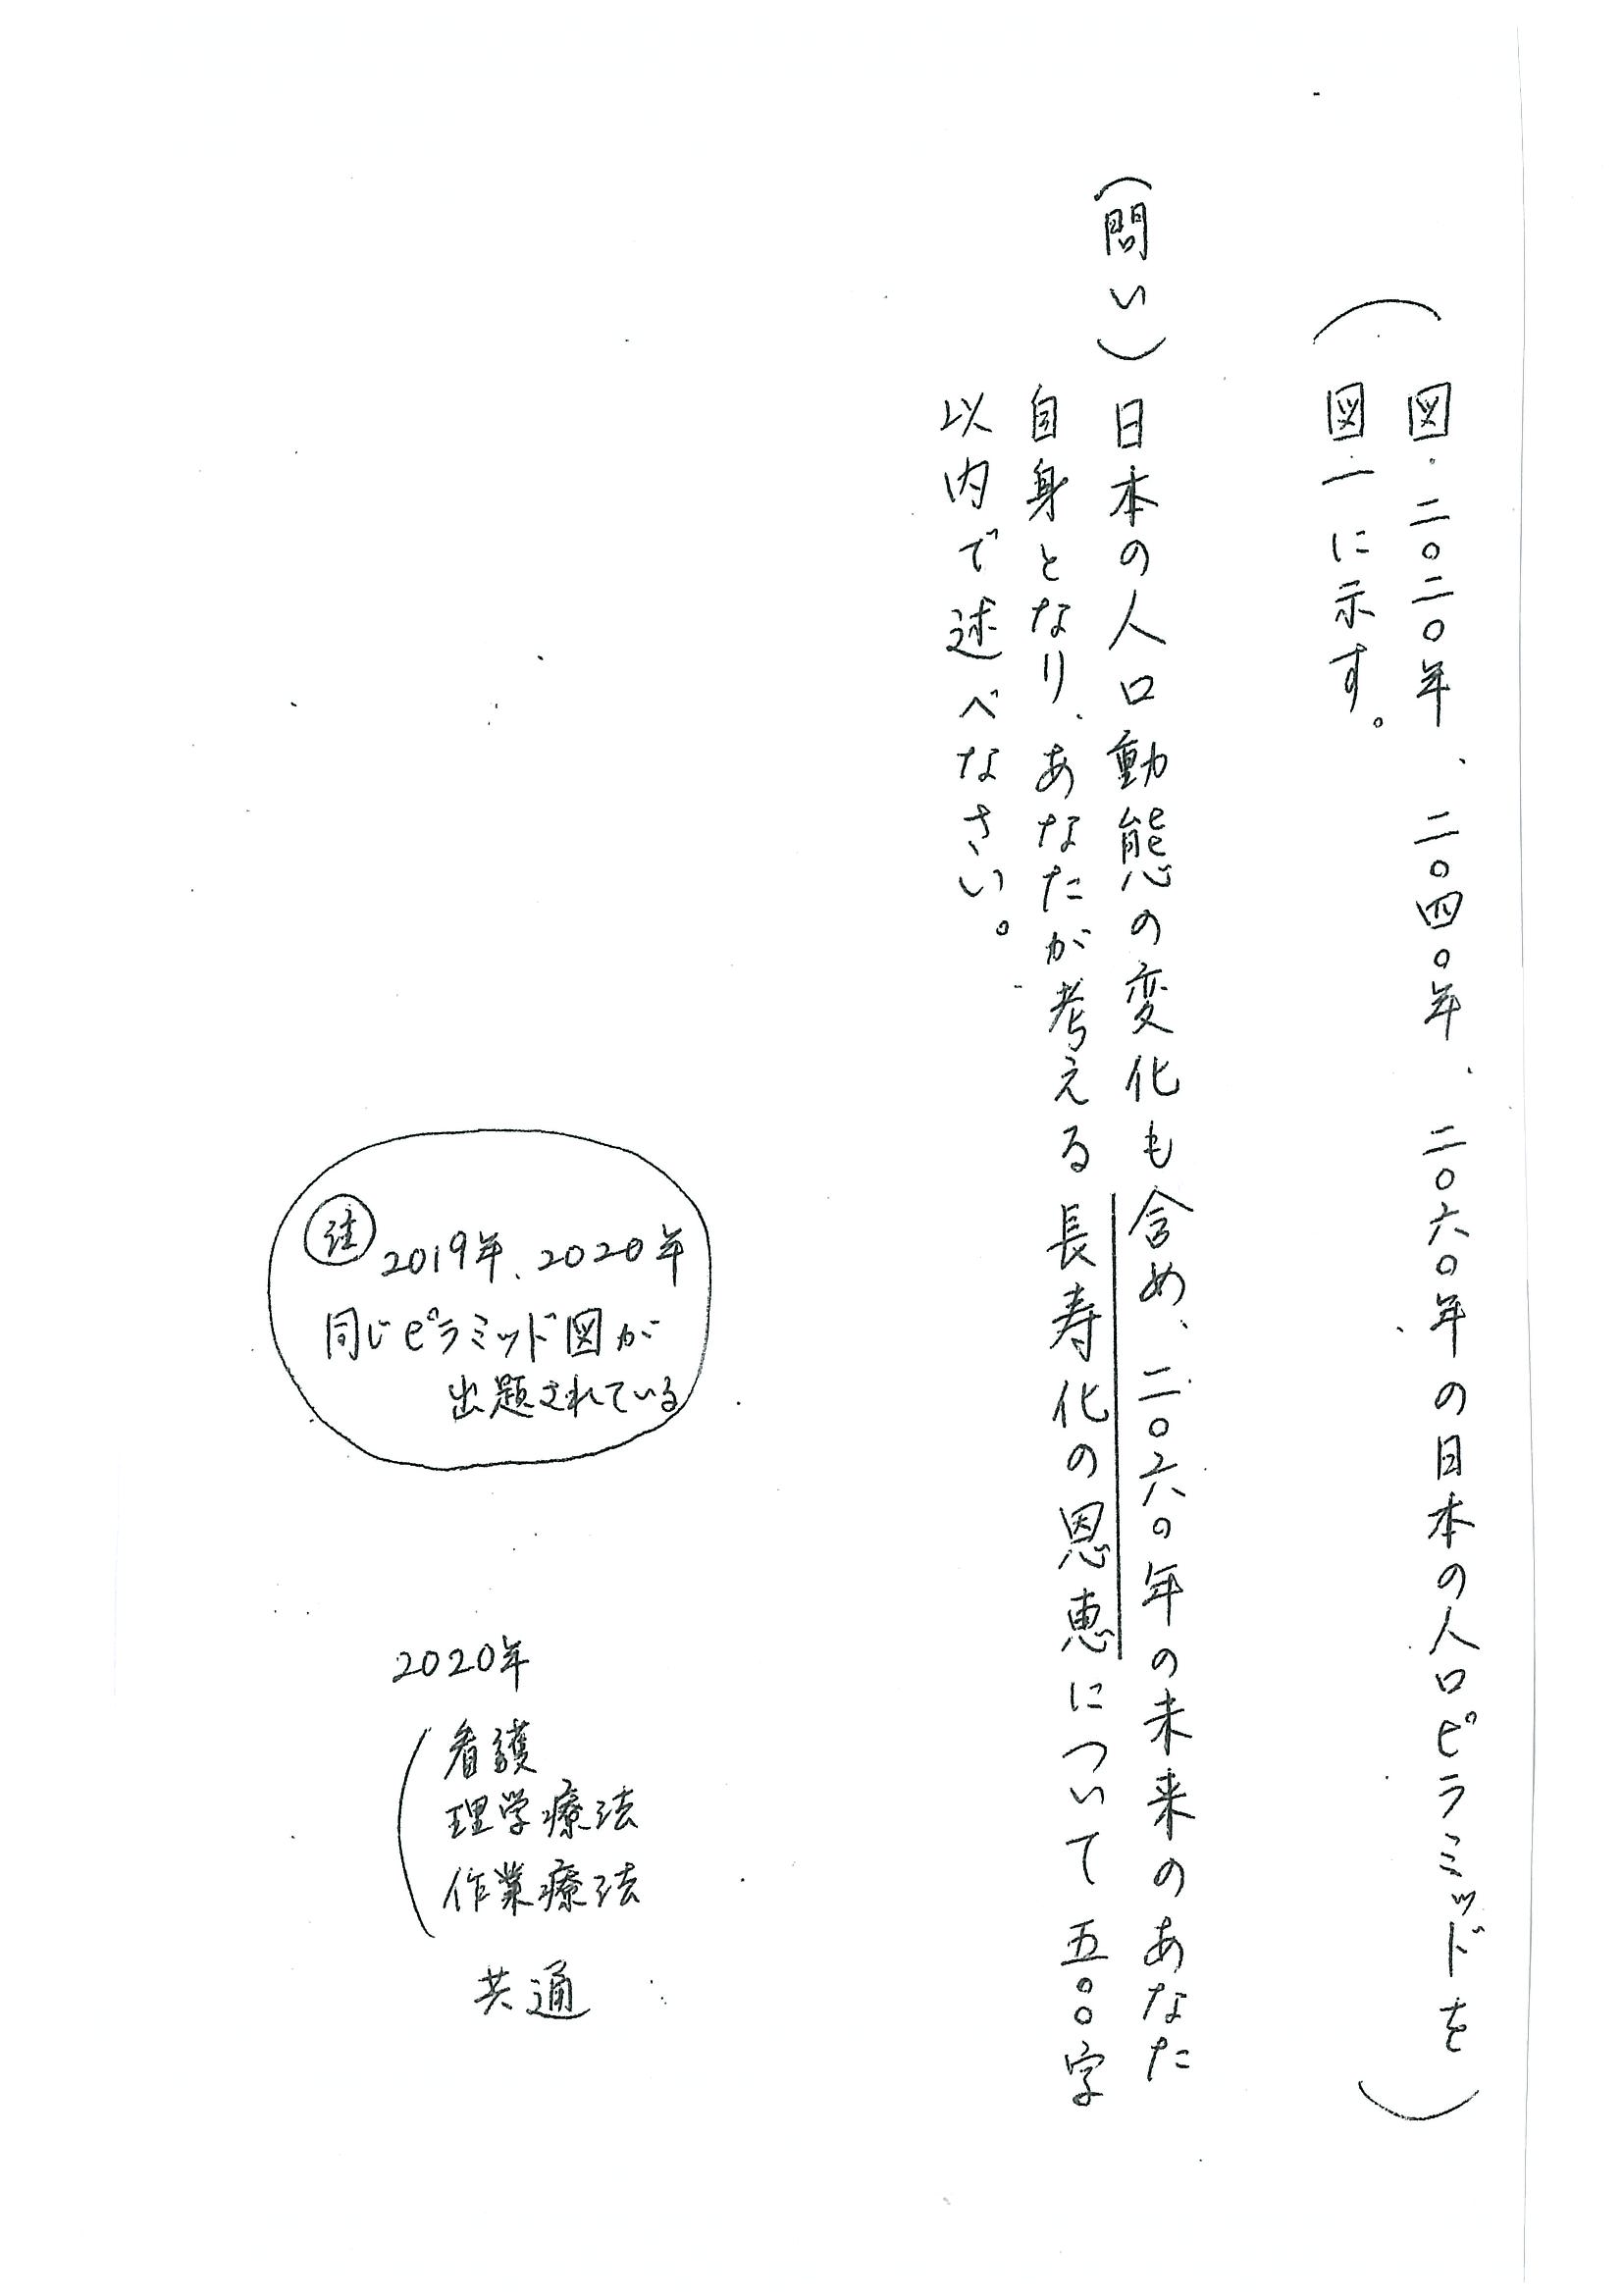 (図・二〇二〇年、二〇四〇年、二〇六〇年の日本の人口ピラミッドを
図一に示す。)
(問い)日本の人口動態の変化も含め、二〇六〇年の未来のあなた
自身となり、あなたが考える長寿化の恩恵について五〇〇字
以内で述べなさい。
注 2019年、2020年
同じピラミッド図が
出題されている
2020年
(看護
理学療法
作業療法
共通